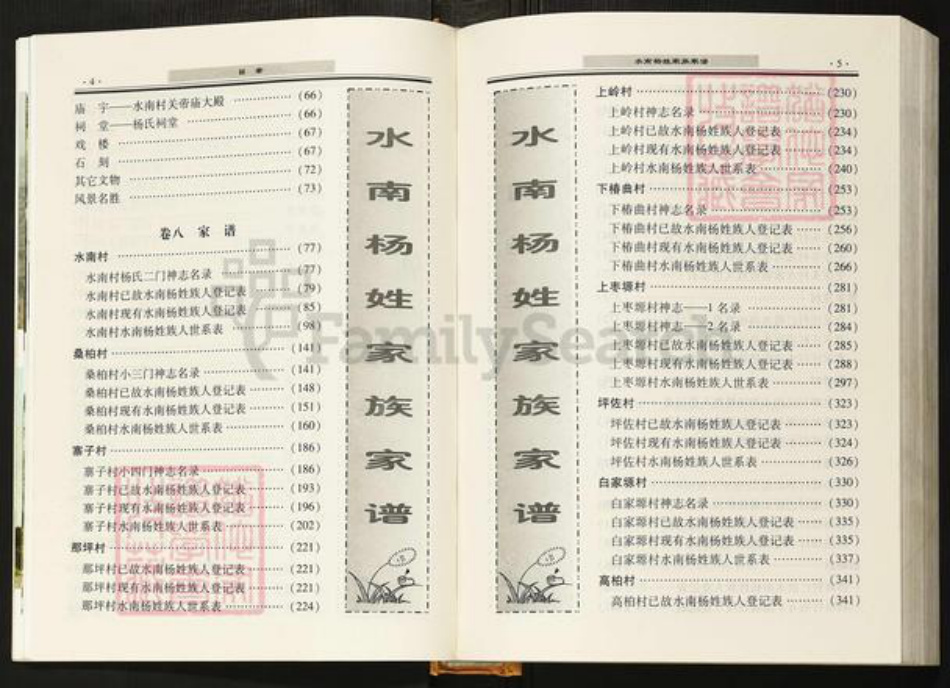 ·4·
目 录
庙 宇——水南村关帝庙大殿 ············ (66)
祠 堂——杨氏祠堂 ············ (66)
戏 楼 ············ (67)
石 刻 ············ (67)
其它文物 ············ (72)
风景名胜 ············ (73)
卷八 家 谱
水南村 ············ (77)
水南村杨氏二门神志名录 ············ (77)
水南村已故水南杨姓族人登记表 ············ (79)
水南村现有水南杨姓族人登记表 ············ (85)
水南村水南杨姓族人世系表 ············ (98)
桑柏村 ············ (141)
桑柏村小三门神志名录 ············ (141)
桑柏村已故水南杨姓族人登记表 ············ (148)
桑柏村现有水南杨姓族人登记表 ············ (151)
桑柏村水南杨姓族人世系表 ············ (160)
寨子村 ············ (186)
寨子村小四门神志名录 ············ (186)
寨子村已故水南杨姓族人登记表 ············ (193)
寨子村现有水南杨姓族人登记表 ············ (196)
寨子村水南杨姓族人世系表 ············ (202)
那坪村 ············ (221)
那坪村已故水南杨姓族人登记表 ············ (221)
那坪村现有水南杨姓族人登记表 ············ (221)
那坪村水南杨姓族人世系表 ············ (224)
水南杨姓家族家谱
水南杨姓家族家谱
水南杨姓家族家谱
·5·
上岭村 ············ (230)
上岭村神志名录 ············ (230)
上岭村已故水南杨姓族人登记表 ············ (234)
上岭村现有水南杨姓族人登记表 ············ (234)
上岭村水南杨姓族人世系表 ············ (240)
下椿曲村 ············ (253)
下椿曲村神志名录 ············ (253)
下椿曲村已故水南杨姓族人登记表 ············ (256)
下椿曲村现有水南杨姓族人登记表 ············ (260)
下椿曲村水南杨姓族人世系表 ············ (266)
上枣塬村 ············ (281)
上枣塬村神志——1名录 ············ (281)
上枣塬村神志——2名录 ············ (284)
上枣塬村已故水南杨姓族人登记表 ············ (285)
上枣塬村现有水南杨姓族人登记表 ············ (288)
上枣塬村水南杨姓族人世系表 ············ (297)
坪佐村 ············ (323)
坪佐村已故水南杨姓族人登记表 ············ (323)
坪佐村现有水南杨姓族人登记表 ············ (324)
坪佐村水南杨姓族人世系表 ············ (326)
白家塬村 ············ (330)
白家塬村神志名录 ············ (330)
白家塬村已故水南杨姓族人登记表 ············ (335)
白家塬村现有水南杨姓族人登记表 ············ (335)
白家塬村水南杨姓族人世系表 ············ (337)
高柏村 ············ (341)
高柏村已故水南杨姓族人登记表 ············ (341)
FamilySearch